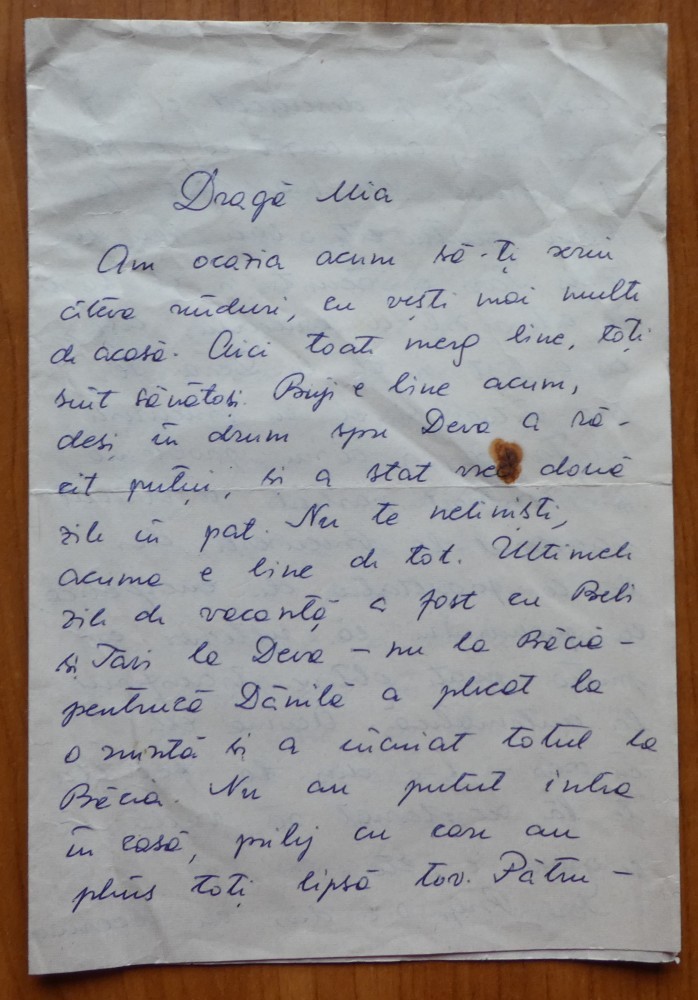 Dragă Mia
Am ocazia acum să-ți scriu
cîteva rînduri, cu vești mai multe
de acasă. Aici toate merg bine, toți
sînt sănătoși. Buji e bine acum,
deși în drum spre Deva a ră-
cit puțin, și a stat vreo două
zile în pat. Nu te neliniști,
acuma e bine de tot. Ultimele
zile de vacanță a fost cu Beli
și Tavi la Deva – nu la Băcia –
pentrucă Dănilă a plecat la
o nuntă și a încuiat totul la
Băcia. Nu au putut intra
în casă, prilej cu care au
plîns toți lipsă tov. Pătru –